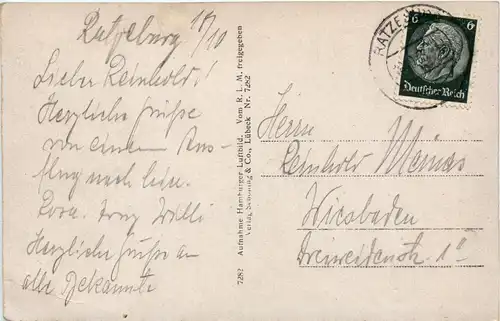 Ratzeburg 17/10
Lieber Reinhold!
Herzliche Grüße
von einem Aus-
flug nach hier.
Rosa. Tony Willi
Herzliche Grüße an
alle Bekannte
7282 Aufnahme Hamburger Luftbild. Vom R. L. M. freigegeben
Verlag Schöning & Co., Lübeck Nr. 7282
RATZEBURG
6 6
Deutsches Reich
Herrn
Reinhold Meinas
Wiesbaden
Dreiweidenstr. 1